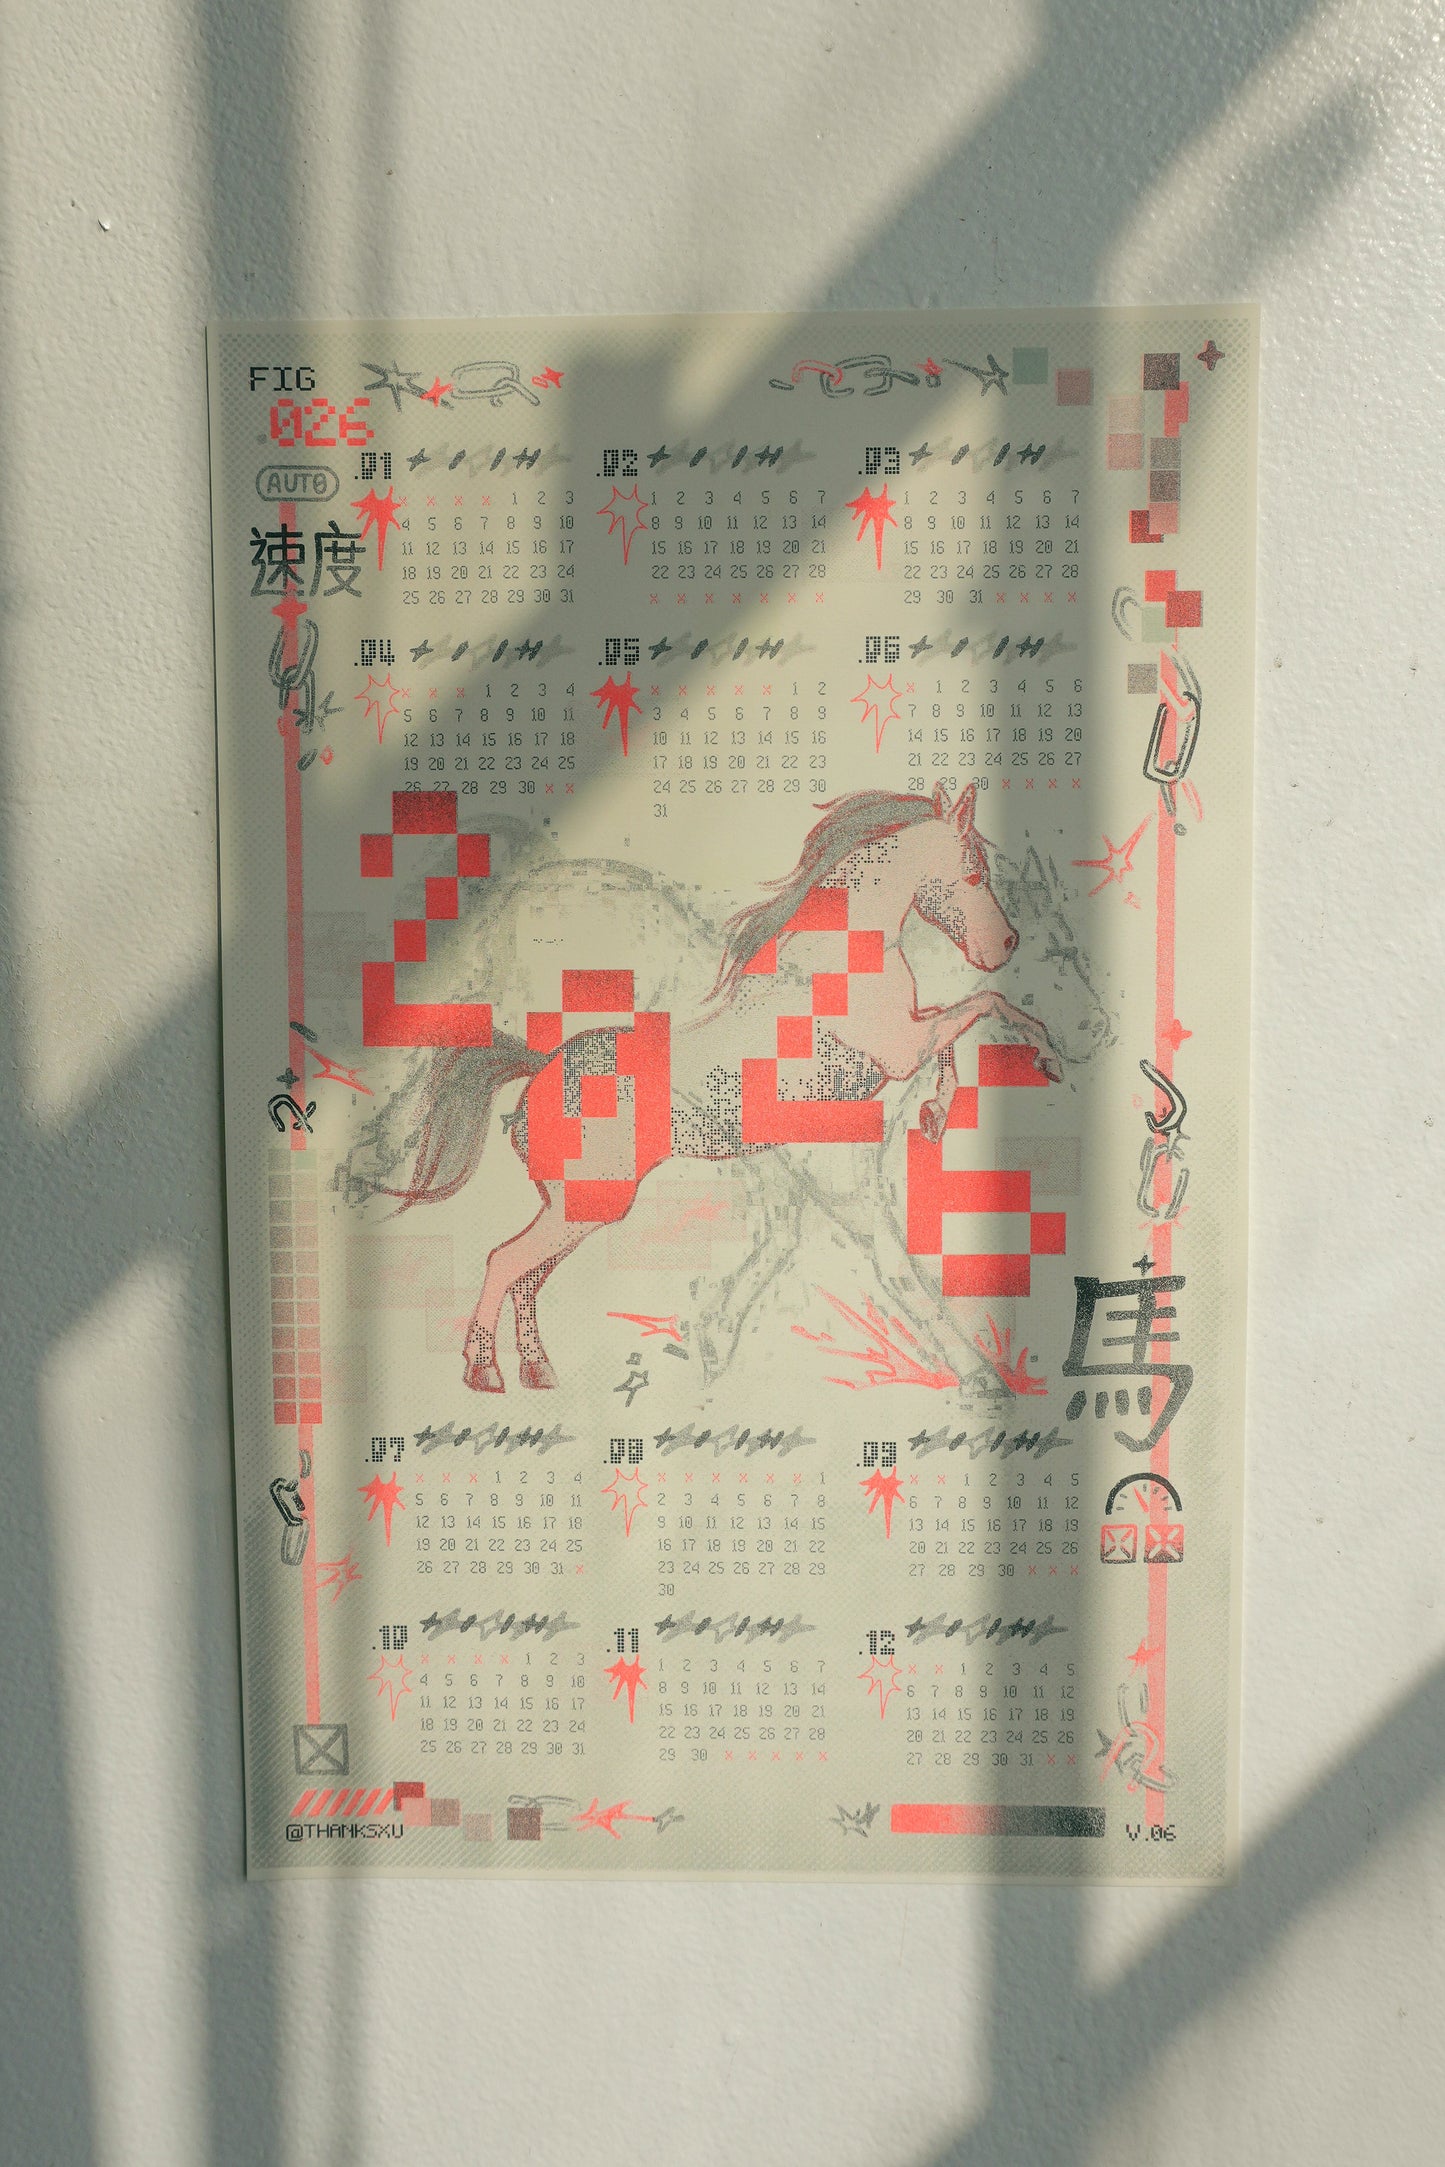 FIG
.026
AUTO
速度
.01
x x x x 1 2 3
4 5 6 7 8 9 10
11 12 13 14 15 16 17
18 19 20 21 22 23 24
25 26 27 28 29 30 31
.02
1 2 3 4 5 6 7
8 9 10 11 12 13 14
15 16 17 18 19 20 21
22 23 24 25 26 27 28
x x x x x x x
.03
1 2 3 4 5 6 7
8 9 10 11 12 13 14
15 16 17 18 19 20 21
22 23 24 25 26 27 28
29 30 31 x x x x
.04
x x x 1 2 3 4
5 6 7 8 9 10 11
12 13 14 15 16 17 18
19 20 21 22 23 24 25
26 27 28 29 30 x x
.05
x x x x x 1 2
3 4 5 6 7 8 9
10 11 12 13 14 15 16
17 18 19 20 21 22 23
24 25 26 27 28 29 30
31
.06
x 1 2 3 4 5 6
7 8 9 10 11 12 13
14 15 16 17 18 19 20
21 22 23 24 25 26 27
28 29 30 x x x x
2026
馬
.07
x x x 1 2 3 4
5 6 7 8 9 10 11
12 13 14 15 16 17 18
19 20 21 22 23 24 25
26 27 28 29 30 31 x
.08
x x x x x x 1
2 3 4 5 6 7 8
9 10 11 12 13 14 15
16 17 18 19 20 21 22
23 24 25 26 27 28 29
30
.09
x x 1 2 3 4 5
6 7 8 9 10 11 12
13 14 15 16 17 18 19
20 21 22 23 24 25 26
27 28 29 30 x x x
.10
x x x x 1 2 3
4 5 6 7 8 9 10
11 12 13 14 15 16 17
18 19 20 21 22 23 24
25 26 27 28 29 30 31
.11
1 2 3 4 5 6 7
8 9 10 11 12 13 14
15 16 17 18 19 20 21
22 23 24 25 26 27 28
29 30 x x x x x
.12
x x 1 2 3 4 5
6 7 8 9 10 11 12
13 14 15 16 17 18 19
20 21 22 23 24 25 26
27 28 29 30 31 x x
@THANKSXU
V.06